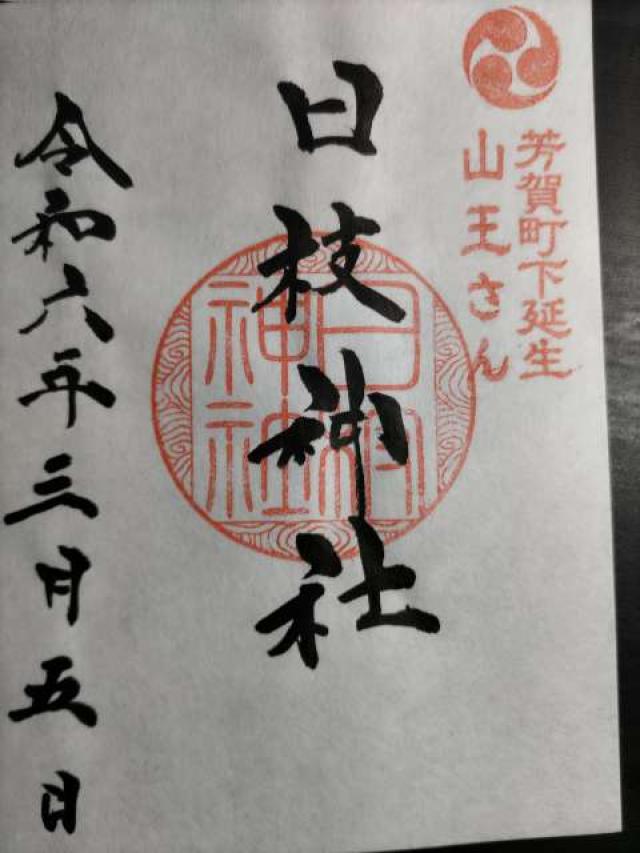 芳賀町下延生
山王さん
日枝神社
日枝神社
令和六年三月五日